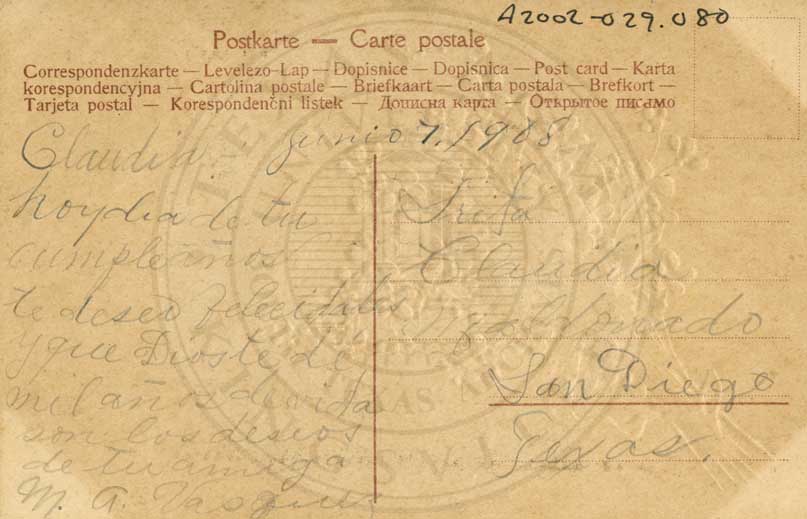 A2002-029.080
Postkarte — Carte postale
Correspondenzkarte — Levelezo-Lap — Dopisnice — Dopisnica — Post card — Karta
korespondencyjna — Cartolina postale — Briefkaart — Carta postala — Brefkort —
Tarjeta postal — Korespondenční listek — Дописна карта — Открытое письмо
Claudia - Junio 7. 1908
hoy dia de tu
cumpleaños
te deseo felecidades
y que Dios te de
mil años de vida
son los deseos
de tu amiga
M. A. Vasquez
Srita
Claudia
Maldonado
San Diego
Texas.